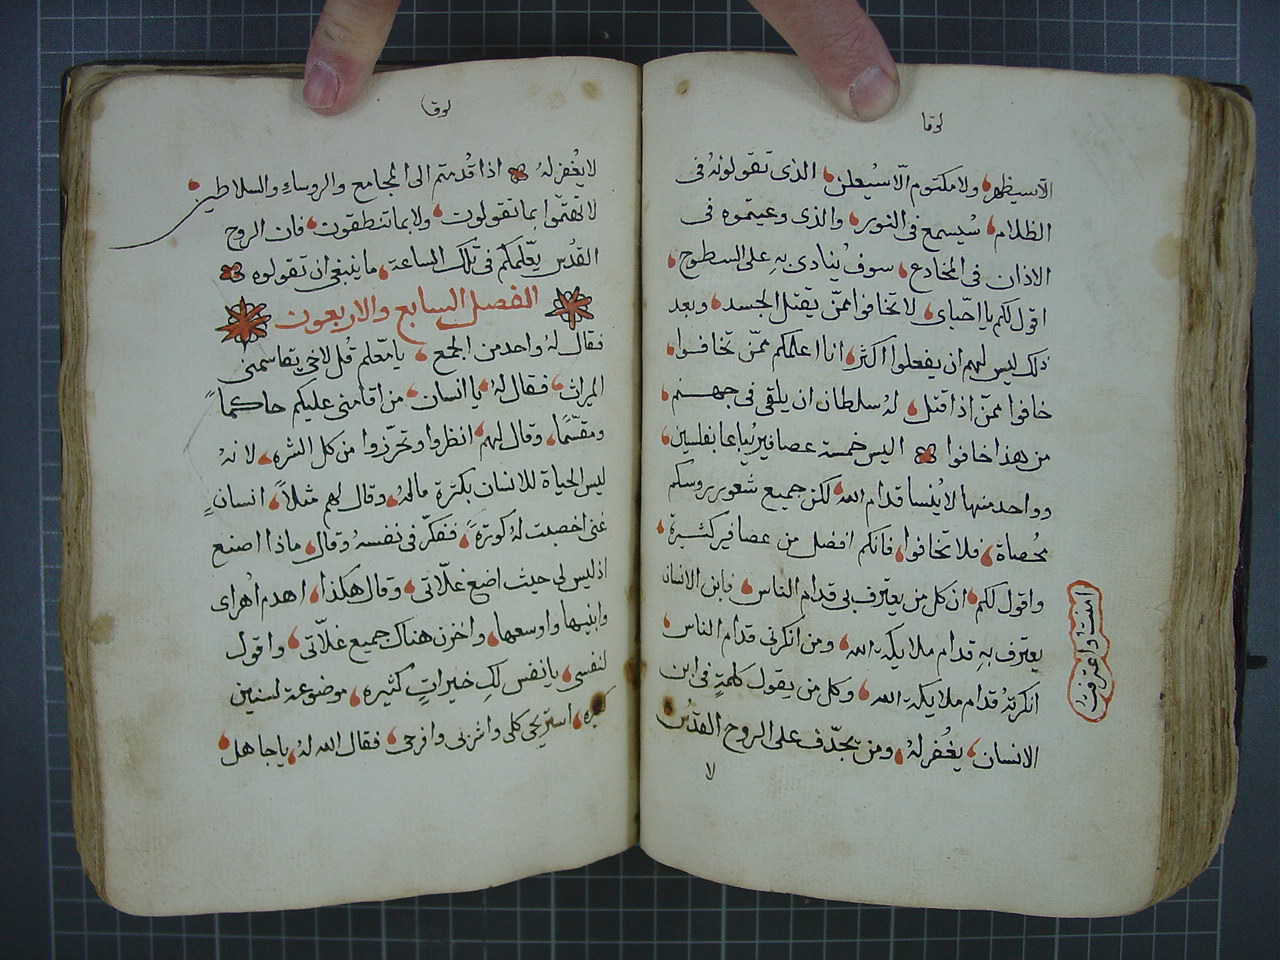 لوقا
الّا سيظهر ولا مكتوم الّا سيُعلن الذى تقولونهُ فى
الظلام سُيسمع فى النور والذى وعيتموه فى
الاذان فى المخادع سوف يُنادى بهِ على السطوح
اقول لكم يا احّباى لا تخافوا ممّن يقتل الجسد وبعد
ذلك ليس لهم ان يفعلوا اكثر انا اعلمكم ممّن تخافوا
خافوا ممّن اذا قتل لهُ سلطان ان يلقى فى جهنم
من هذا خافوا اليس خمسة عصافير يُباعا بفلسين
وواحد منها لا يُنسا قدام الله لكن جميع شعور روسكم
مُحصاة فلا تخافوا فانكم افضل من عصافير كثيرة
واقول لكم ان كل من يعترف بى قدام الناس فابن الانسان
يعترف بهِ قدام ملايكة الله ومن انكرنى قدام الناس
انكرتهُ قدام ملايكة الله وكل من يقول كلمةٍ فى ابن
الانسان يغُفر لهُ ومن يجدّف على الروح القدُس
لا
امنت واعترفت
لوق
لا يغُفر لهُ اذا قُدمتم الى المجامع والروساء والسلاطين
لا تهتمّوا بما تقولون ولا بما تنطقون فان الروح
القدُس يعّلمكم فى تلك الساعة ما ينبغى ان تقولوه
الفصل السابع والاربعون
فقال لهُ واحد من الجمع يا معّلم قُل لاخى يقاسمنى
الميراث فقال لهُ يا انسان من اقامنى عليكم حاكماً
ومقسّمًا وقال لهم انظروا وتحرّزوا من كل الشره لانهُ
ليس الحياة للانسان بكثرة مالهُ وقال لهم مثلاً انسانٍ
غنى اخصبت لهُ كورتهُ ففكّر فى نفسهُ وقال ماذا اصنع
اذ ليس لى حيث اضع غلّاتى وقال هكذا اهدم اُهراى
وابنيها واوسعها واخزن هناك جميع غلّاتى واقول
لنفسى يا نفس لكِ خيراتٍ كثيره موضوعة لسنين
كثيره استريحى كلى واشربى وافرحى فقال الله لهُ يا جاهل